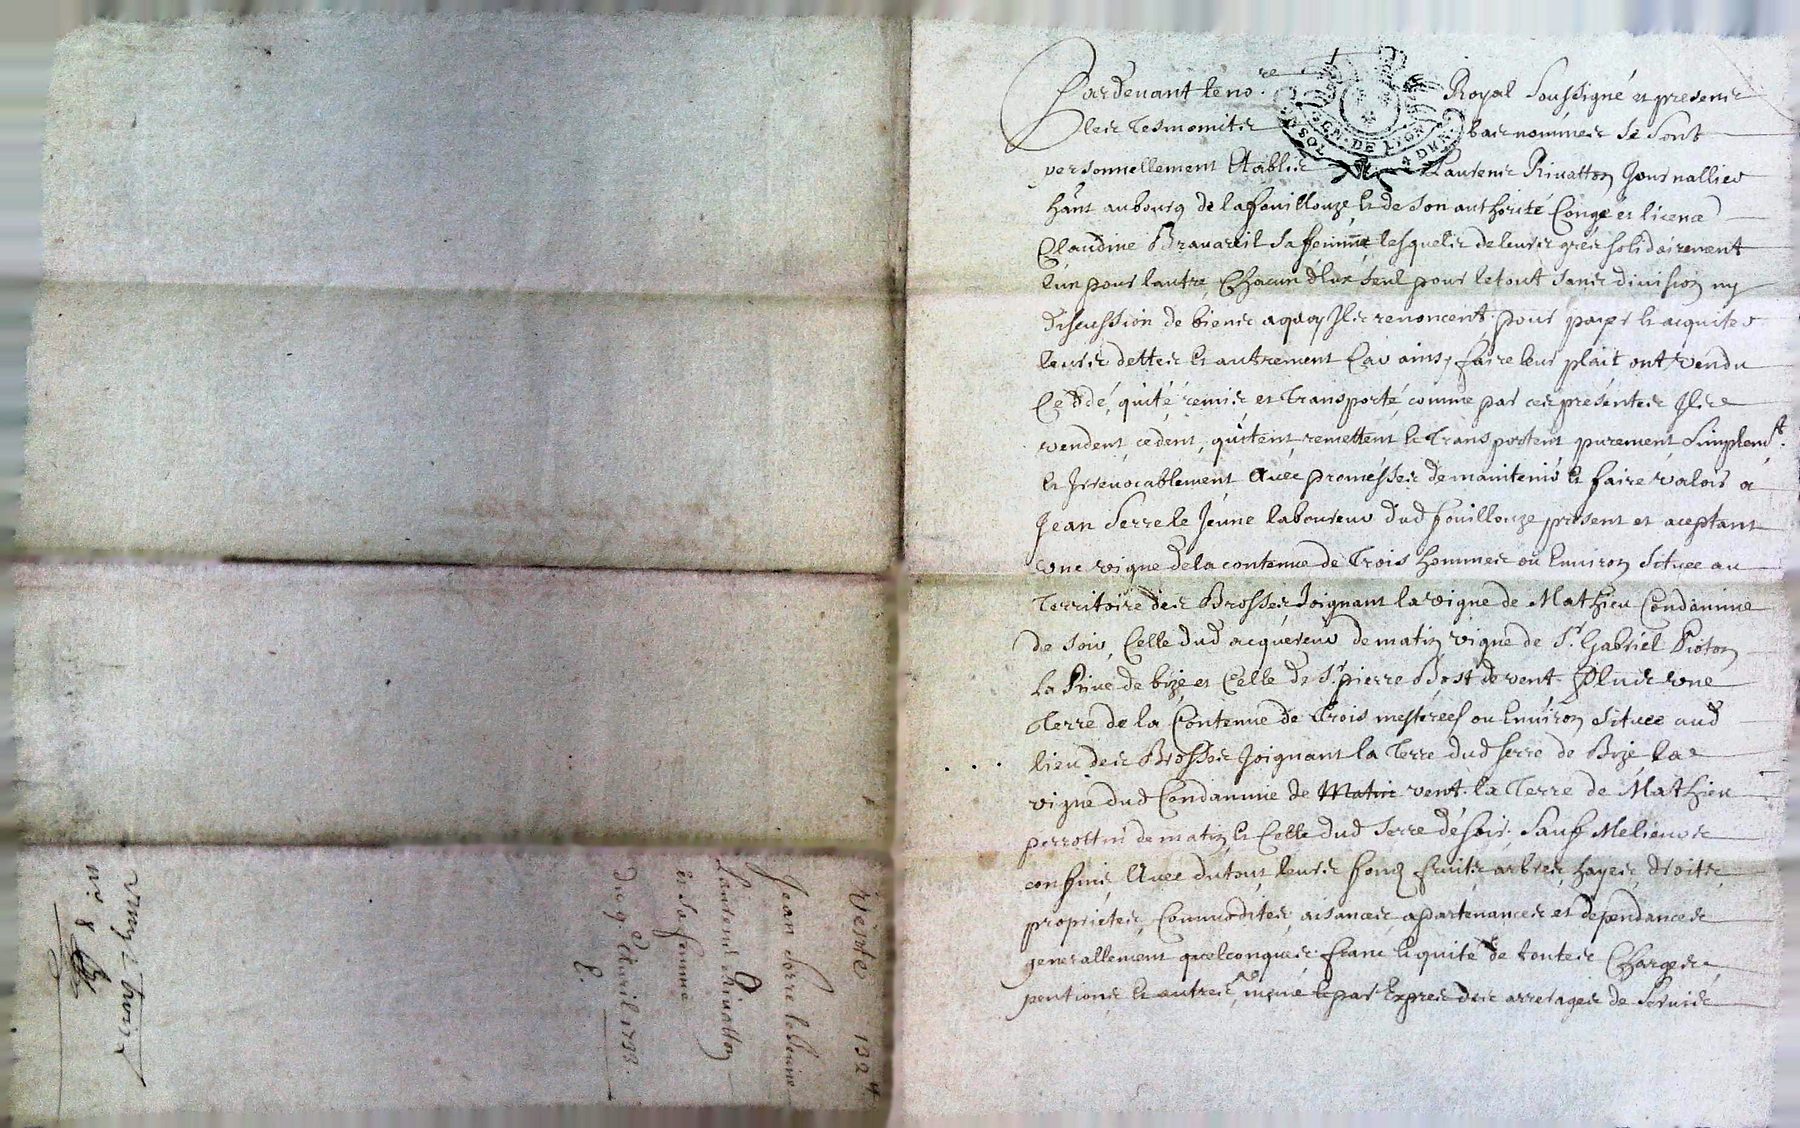 Pardevant le no.re Royal soussigné et presents
les tesmoints bas nommés se sont
personnellement Establis Laurens Rivatton Journallier
hânt au bourg de lafouillouze et de son authorité Congé et licence
Claudine Bravard sa femme lesquels de leurs grés solidairement
l'un pour lautre, Chacun d'Eux seul pour letout sans division ny
discussion de biens aquoy Ils renoncent pour payer et acquiter
leurs dettes et autrement Car ainsy faire leur plait ont vendu
Ceddé, quité remis et transporté comme par ces présentes Ils
vendent, cedent, quitent remettent et transportent purement, simplem.t
et Irrevocablement Avec promesses de maintenir et faire valoir a
Jean Serre le Jeune laboureur dud fouillouze présent et aceptant
une vigne de la contenue de Trois hommes ou Environ située au
Territoire des Brosses Joignant la vigne de Mathieu Condamine
de soir, Celle dud acquereur de matin, vigne de Sr. Gabriel Pioton
La Rive de bize et Celle de Sr. pierre Bost de vent. Plus une
Terre de la Contenue de trois mesterees ou Environ située aud
lieu des Brosses Joignant la Terre dud serre de Bize la
vigne dud Condamine de Matin vent. la Terre de Mathieu
perrottin de matin et Celle dud serre de soir. sauf Melieurs
confins Avec du tout, leurs fonds fruits arbres, hayes, droits,
proprietes, Commodites, aisances, apartenances et dependances
generallement quelconques. franc et quité de toutes Charges,
pentions et autres, même et par Exprès des arrerages de servis
Vente 132 tt
Jean Serre le Jeune
Laurens Rivatton
et sa femme
Du 9.e Avril 1733.
n.o 8